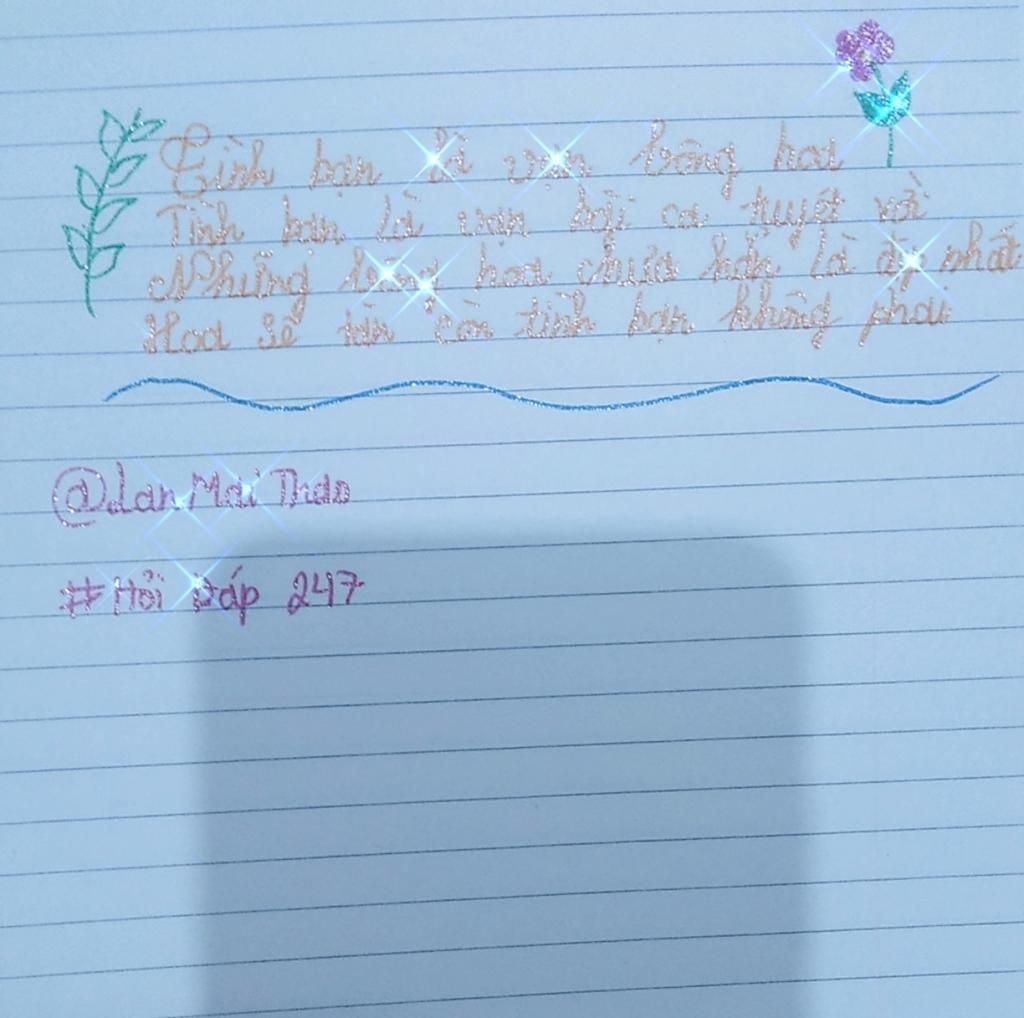 Tình bạn là vạn bông hoa
Tình bạn là vạn bài ca tuyệt vời
Nhưng bông hoa chưa hẳn là đẹp nhất
Hoa sẽ tàn còn tình bạn không phai
@Lan Mai Thao
#Hỏi Đáp 247